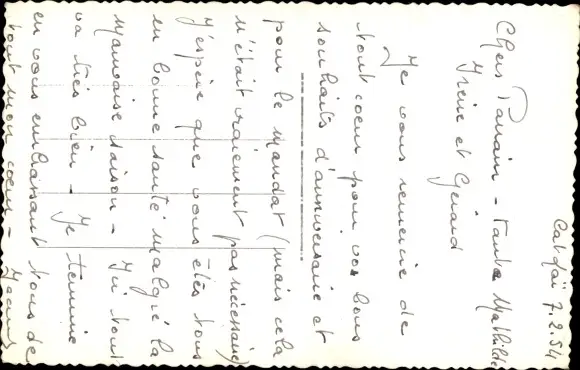 Catdaï 7.2.54
Chers Parrain - Tante Mathilde
Irène et Gérard
Je vous remercie de
tout coeur pour vos bons
souhaits d'anniversaire et
pour le mandat (mais cela
n'était vraiement pas nécessaire)
J'espère que vous êtes tous
en bonne santé malgré la
mauvaise saison - Ici tout
va très bien - Je termine
en vous embrassant tous de
tout mon coeur -